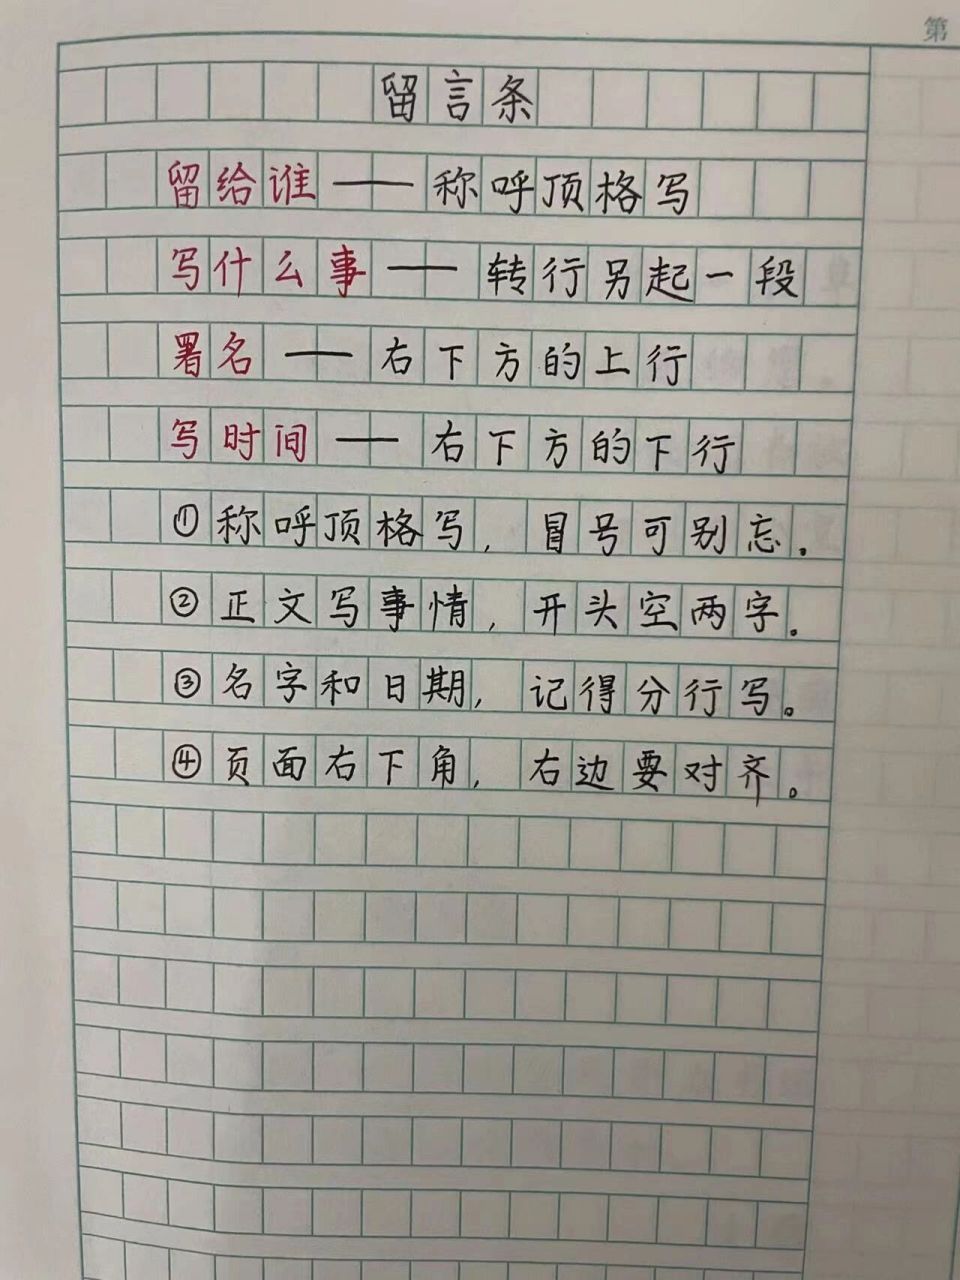 第
留言条
留给谁——称呼顶格写
写什么事——转行另起一段
署名——右下方的上行
写时间——右下方的下行
①称呼顶格写，冒号可别忘。
②正文写事情，开头空两字。
③名字和日期，记得分行写。
④页面右下角，右边要对齐。